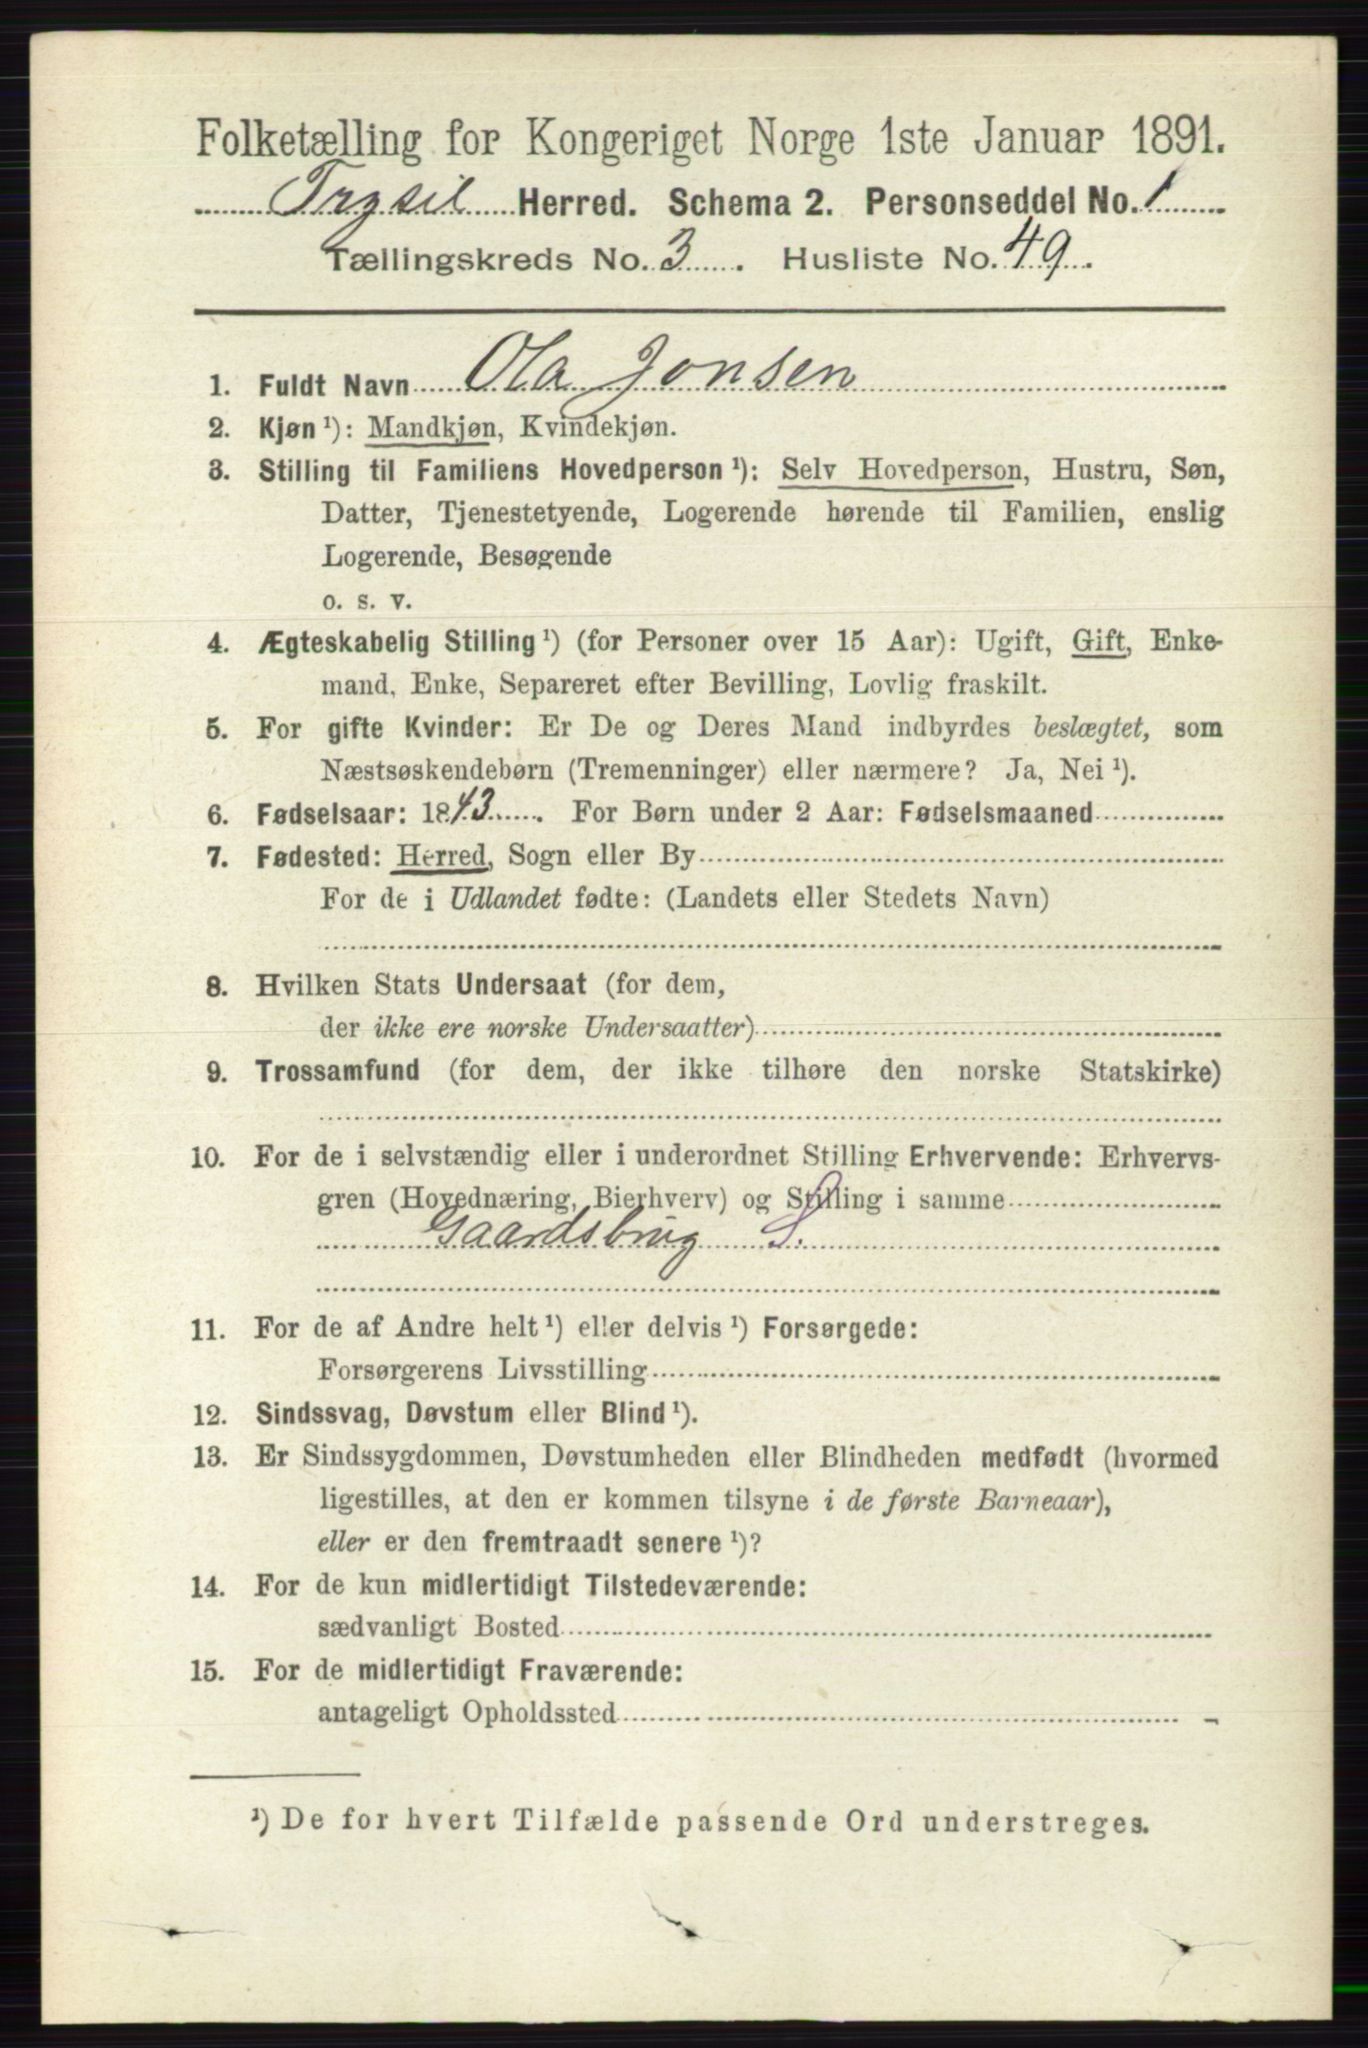 Folketælling for Kongeriget Norge 1ste Januar 1891.
Trysil Herred. Schema 2. Personseddel No. 1
Tællingskreds No. 3. Husliste No. 49.
1. Fuldt Navn Ola Jonsen
2. Kjøn¹): Mandkjøn, Kvindekjøn.
3. Stilling til Familiens Hovedperson¹): Selv Hovedperson, Hustru, Søn,
Datter, Tjenestetyende, Logerende hørende til Familien, enslig
Logerende, Besøgende
o. s. v.
4. Ægteskabelig Stilling¹) (for Personer over 15 Aar): Ugift, Gift, Enke-
mand, Enke, Separeret efter Bevilling, Lovlig fraskilt.
5. For gifte Kvinder: Er De og Deres Mand indbyrdes beslægtet, som
Næstsøskendebørn (Tremenninger) eller nærmere? Ja, Nei¹).
6. Fødselsaar: 1843. For Børn under 2 Aar: Fødselsmaaned
7. Fødested: Herred, Sogn eller By
For de i Udlandet fødte: (Landets eller Stedets Navn)
8. Hvilken Stats Undersaat (for dem,
der ikke ere norske Undersaatter)
9. Trossamfund (for dem, der ikke tilhøre den norske Statskirke)
10. For de i selvstændig eller i underordnet Stilling Erhvervende: Erhvervs-
gren (Hovednæring, Bierhverv) og Stilling i samme
Gaardsbrug S.
11. For de af Andre helt¹) eller delvis¹) Forsørgede:
Forsørgerens Livsstilling
12. Sindssvag, Døvstum eller Blind¹).
13. Er Sindssygdommen, Døvstumheden eller Blindheden medfødt (hvormed
ligestilles, at den er kommen tilsyne i de første Barneaar),
eller er den fremtraadt senere¹)?
14. For de kun midlertidigt Tilstedeværende:
sædvanligt Bosted
15. For de midlertidigt Fraværende:
antageligt Opholdssted
¹) De for hvert Tilfælde passende Ord understreges.